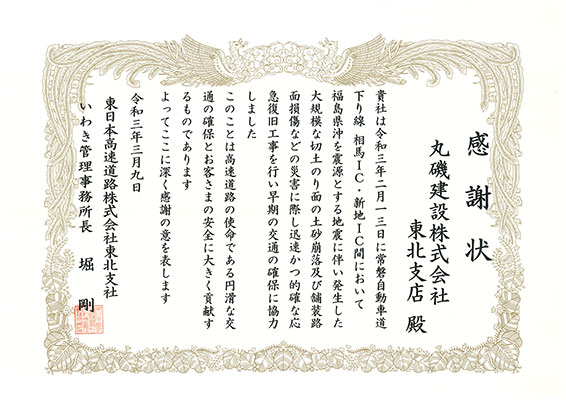 感謝状
丸磯建設株式会社
東北支店 殿
貴社は令和三年二月一三日に常磐自動車道
下り線 相馬IC・新地IC間において
福島県沖を震源とする地震に伴い発生した
大規模な切土のり面の土砂崩落及び舗装路
面損傷などの災害に際し迅速かつ的確な応
急復旧工事を行い早期の交通の確保に協力
しました
このことは高速道路の使命である円滑な交
通の確保とお客さまの安全に大きく貢献す
るものであります
よってここに深く感謝の意を表します
令和三年三月九日
東日本高速道路株式会社東北支社
いわき管理事務所長 堀 剛